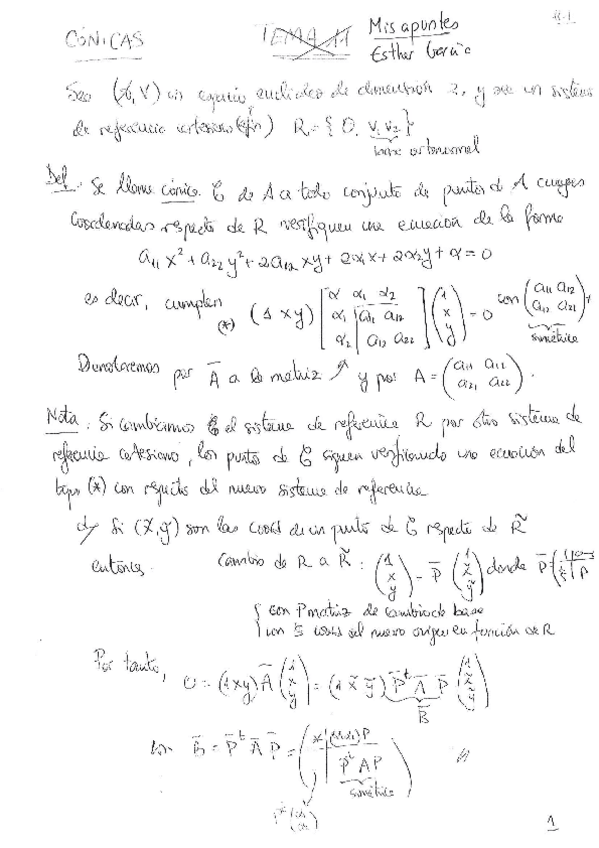 CÓNICAS TEMA 11 Mis apuntes
Esther García
Sea (A,V) un espacio euclídeo de dimensión 2, y sea un sistema
de referencia cartesiano R = { O, v₁ v₂ }
base ortonormal
Def. Se llama cónica C de A a todo conjunto de puntos de A cuyas
coordenadas respecto de R verifiquen una ecuación de la forma
a₁₁ x² + a₂₂ y² + 2a₁₂ xy + 2α₁x + 2α₂y + α = 0
es decir, cumplen (*) (1 x y) [ α α₁ α₂ / α₁ a₁₁ a₁₂ / α₂ a₁₂ a₂₂ ] ( 1 / x / y ) = 0 con ( a₁₁ a₁₂ / a₁₂ a₂₂ )
simétrica
Denotaremos por Ā a la matriz ↗ y por A = ( a₁₁ a₁₂ / a₂₁ a₂₂ ).
Nota: Si cambiamos el sistema de referencia R por otro sistema de
referencia cartesiano, los puntos de C siguen verificando una ecuación del
tipo (*) con respecto del nuevo sistema de referencia.
Si (x̃,ỹ) son las coords de un punto de C respecto de R̃
entonces Cambio de R a R̃ : ( 1 / x / y ) = P̄ ( 1 / x̃ / ỹ ) donde P̄
con P matriz de cambio de base
coords del nuevo origen en función de R
Por tanto, 0 = (1 x y) Ā ( 1 / x / y ) = (1 x̃ ỹ) P̄ᵗ Ā P̄ ( 1 / x̃ / ỹ )
B̄
B̄ = P̄ᵗ Ā P̄ =
Pᵗ A P
simétrica
1